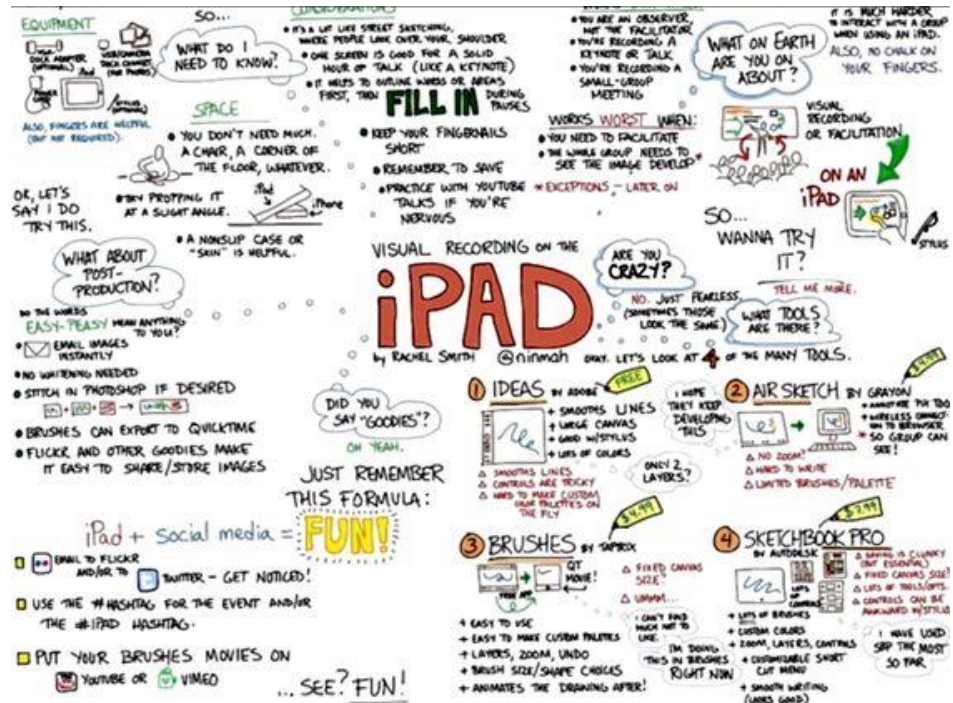 EQUIPMENT
DOCK ADAPTER
(OPTIONAL)
iPad
STYLUS
(OPTIONAL)
ALSO, FINGERS ARE HELPFUL
(BUT NOT REQUIRED).
SO...
WHAT DO I
NEED TO KNOW?
SPACE
• YOU DON'T NEED MUCH.
A CHAIR, A CORNER OF
THE FLOOR, WHATEVER.
• TRY PROPPING IT
AT A SLIGHT ANGLE.
iPad
iPhone
• A NONSLIP CASE OR
"SKIN" IS HELPFUL.
OK, LET'S
SAY I DO
TRY THIS.
CONSIDERATIONS
• IT'S A LOT LIKE STREET SKETCHING,
WHERE PEOPLE LOOK OVER YOUR SHOULDER
• ONE SCREEN IS GOOD FOR A SOLID
HOUR OF TALK (LIKE A KEYNOTE)
• IT HELPS TO OUTLINE WORDS OR AREAS
FIRST, THEN FILL IN DURING
PAUSES
• KEEP YOUR FINGERNAILS
SHORT
• REMEMBER TO SAVE
• PRACTICE WITH YOUTUBE
TALKS IF YOU'RE
NERVOUS
• YOU ARE AN OBSERVER,
NOT THE FACILITATOR
• YOU'RE RECORDING A
KEYNOTE OR TALK
• YOU'RE RECORDING A
SMALL-GROUP
MEETING
WORKS WORST WHEN:
• YOU NEED TO FACILITATE
• THE WHOLE GROUP NEEDS TO
SEE THE IMAGE DEVELOP*
* EXCEPTIONS - LATER ON
WHAT ON EARTH
ARE YOU ON
ABOUT?
IT IS MUCH HARDER
TO INTERACT WITH A GROUP
WHEN USING AN iPAD.
ALSO, NO CHALK ON
YOUR FINGERS.
VISUAL
RECORDING
OR FACILITATION
ON AN
iPAD
STYLUS
SO...
WANNA TRY
IT?
TELL ME MORE.
ARE YOU
CRAZY?
NO. JUST FEARLESS.
(SOMETIMES THOSE
LOOK THE SAME.)
WHAT TOOLS
ARE THERE?
VISUAL RECORDING ON THE
iPAD
by RACHEL SMITH @ninmah
OKAY. LET'S LOOK AT 4 OF THE MANY TOOLS.
WHAT ABOUT
POST-
PRODUCTION?
DO THE WORDS
EASY-PEASY MEAN ANYTHING
TO YOU?
• EMAIL IMAGES
INSTANTLY
• NO WHITENING NEEDED
• STITCH IN PHOTOSHOP IF DESIRED
• BRUSHES CAN EXPORT TO QUICKTIME
• FLICKR AND OTHER GOODIES MAKE
IT EASY TO SHARE/STORE IMAGES
DID YOU
SAY "GOODIES"?
OH YEAH.
JUST REMEMBER
THIS FORMULA:
iPad + social media = FUN!
EMAIL TO FLICKR
AND/OR TO TWITTER - GET NOTICED!
USE THE #HASHTAG FOR THE EVENT AND/OR
THE #IPAD HASHTAG.
PUT YOUR BRUSHES MOVIES ON
YOUTUBE OR VIMEO
...SEE? FUN!
1 IDEAS BY ADOBE
FREE
+ SMOOTHS LINES
+ LARGE CANVAS
+ GOOD W/STYLUS
+ LOTS OF COLORS
Δ SMOOTHS LINES
Δ CONTROLS ARE TRICKY
Δ HARD TO MAKE CUSTOM
COLOR PALETTES ON
THE FLY
I HOPE
THEY KEEP
DEVELOPING
THIS.
ONLY 2
LAYERS?
2 AIR SKETCH BY GRAYON
+ ANNOTATE PIX TOO
+ WIRELESS CONNECT-
ION TO BROWSER
* SO GROUP CAN
SEE!
Δ NO ZOOM?
Δ HARD TO WRITE
Δ LIMITED BRUSHES/PALETTE
3 BRUSHES BY TAPTRIX
$4.99
QT
MOVIE!
YOUR APP
Δ FIXED CANVAS
SIZE?
Δ UMMM...
I CAN'T FIND
MUCH NOT TO
LIKE.
I'M DOING
THIS IN BRUSHES
RIGHT NOW
+ EASY TO USE
+ EASY TO MAKE CUSTOM PALETTES
+ LAYERS, ZOOM, UNDO
+ BRUSH SIZE/SHAPE CHOICES
+ ANIMATES THE DRAWING AFTER!
4 SKETCHBOOK PRO
$7.99
BY AUTODESK
LOTS OF
CONTROLS
Δ SAVING IS CLUNKY
(BUT ESSENTIAL)
Δ FIXED CANVAS SIZE?
Δ LOTS OF TOOLS/OPTS.
Δ CONTROLS CAN BE
AWKWARD W/STYLUS
+ LOTS OF BRUSHES
+ CUSTOM COLORS
+ ZOOM, LAYERS, CONTROLS
+ CUSTOMIZABLE SHORT
CUT MENU
+ SMOOTH WRITING
(LOOKS GOOD)
I HAVE USED
SBP THE MOST
SO FAR